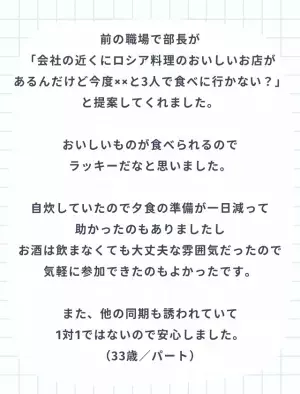 前の職場で部長が
「会社の近くにロシア料理のおいしいお店が
あるんだけど今度××と3人で食べに行かない？」
と提案してくれました。
おいしいものが食べられるので
ラッキーだなと思いました。
自炊していたので夕食の準備が一日減って
助かったのもありましたし
お酒は飲まなくても大丈夫な雰囲気だったので
気軽に参加できたのもよかったです。
また、他の同期も誘われていて
1対1ではないので安心しました。
（33歳／パート）